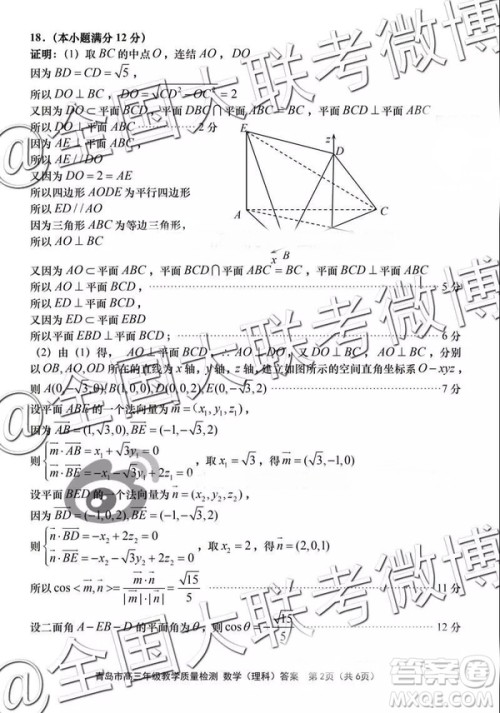 18.（本小题满分 12 分）
证明：（1）取 BC 的中点 O，连结 AO，DO
因为 BD = CD = √5，
所以 DO ⊥ BC，DO = √(CD² − OC²) = 2
又因为 DO ⊂ 平面 BCD，平面 DBC ∩ 平面 ABC = BC，平面 BCD ⊥ 平面 ABC
所以 DO ⊥ 平面 ABC ……………… 2 分
因为 AE ⊥ 平面 ABC，
所以 AE // DO
又因为 DO = 2 = AE
所以四边形 AODE 为平行四边形
所以 ED // AO
因为三角形 ABC 为等边三角形，
所以 AO ⊥ BC
z
E
D
A
C
x
B
又因为 AO ⊂ 平面 ABC，平面 BCD ∩ 平面 ABC = BC，平面 BCD ⊥ 平面 ABC
所以 AO ⊥ 平面 BCD，所以 ED ⊥ 平面 BCD ……………… 5 分
又因为 ED ⊂ 平面 EBD
所以平面 EBD ⊥ 平面 BCD； ……………… 6 分
（2）由（1）得， AO ⊥ 平面 BCD，所以 AO ⊥ DO，又 DO ⊥ BC，AO ⊥ BC，分别
以 OB, AO, OD 所在的直线为 x 轴，y 轴，z 轴，建立如图所示的空间直角坐标系 O − xyz，
则 A(0, −√3, 0), B(1, 0, 0), D(0, 0, 2), E(0, −√3, 2) ……………… 7 分
设平面 ABE 的一个法向量为 m = (x₁, y₁, z₁)，
因为 AB = (1, √3, 0), BE = (−1, −√3, 2)
则 { m · AB = x₁ + √3y₁ = 0
m · BE = −x₁ − √3y₁ + 2z₁ = 0 ，取 x₁ = √3，得 m = (√3, −1, 0)
设平面 BED 的一个法向量为 n = (x₂, y₂, z₂)，
因为 BD = (−1, 0, 2), BE = (−1, −√3, 2)
则 { n · BD = −x₂ + 2z₂ = 0
n · BE = −x₂ − √3y₂ + 2z₂ = 0 ，取 x₂ = 2，得 n = (2, 0, 1)
所以 cos < m, n >= m · n / |m| · |n| = √15 / 5 ……………… 11 分
设二面角 A − EB − D 的平面角为 θ，则 cosθ = −√15 / 5 ……………… 12 分
青岛市高三年级教学质量检测 数学（理科）答案 第 2 页（共 6 页）
@全国大联考微博
@全国大联考微博